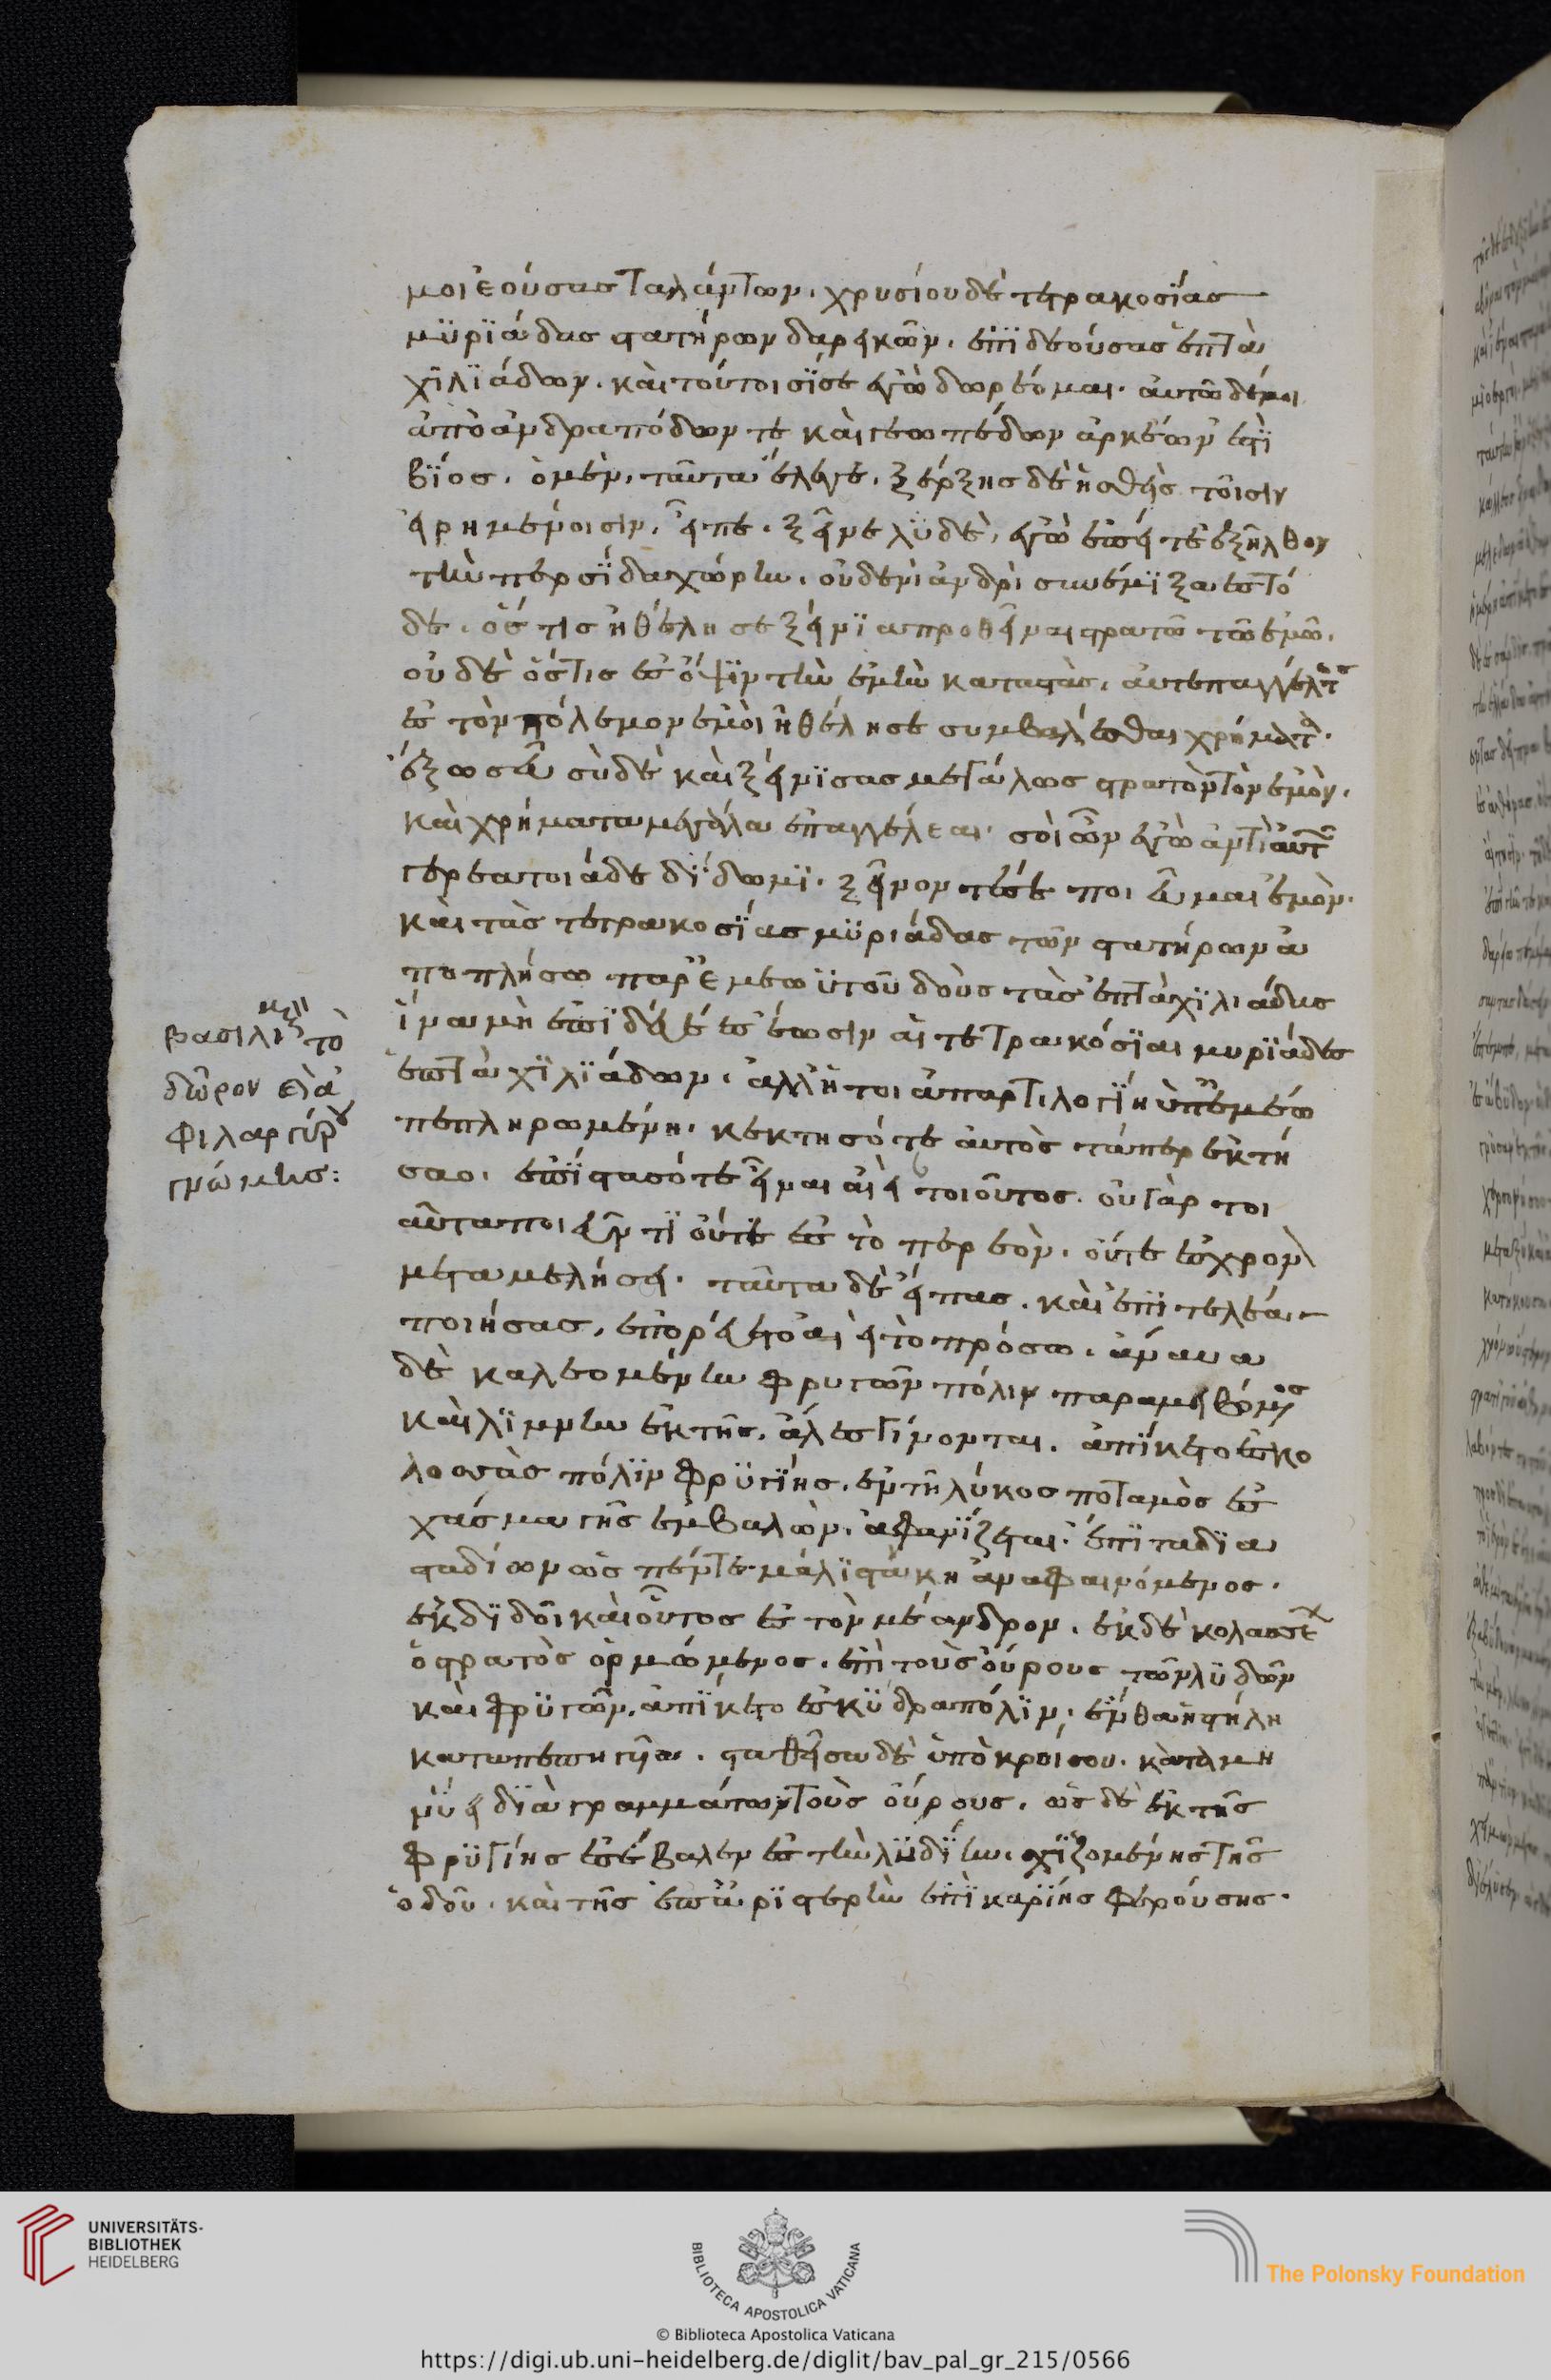 μοι ἐούσασ ταλάντων. χρυσίου δὲ τετρακοσίασ
μϋρϊάδασ στατήρων δαρεικῶν. ἐπϊ δεούσασ ἑπτὰ
χϊλϊάδων. καὶ τούτοισΐ σε ἐγὼ δωρέομαι. ἀυτῶ δέ μοι
ἀπὸ ἀνδραπόδων τε καὶ γεωπέδων ἀρκέων ἐστὶ
βίοσ. ὁ μὲν, ταῦτα ἔλεγε. ξέρξησ δὲ ἡσθεὶσ τοῖσιν
ἐιρημένοισιν, εἶπε. ξεῖνε λϋδὲ, ἐγὼ ἐπεί τε ἐξῆλθον
τὴν περσΐδα χώρην. οὐδενὶ ἀνδρὶ συνέμϊξα ἐσ τό
δε. ὅσ τισ ἠθέλησε ξείνϊα προθεῖναι στρατῶ τῶ ἐμῶ.
οὐδὲ ὅστισ ἐσ ὄψϊν τὴν ἐμὴν καταστὰσ, ἀυτεπάγγελτος
ἐσ τὸν πόλεμον ἐμὸι ἠθέλησε συμβαλέσθαι χρήματα.
ἔξω σεῦ σὺ δὲ καὶ ξείνϊσασ μεγάλωσ στρατὸν τὸν ἐμὸν.
καὶ χρήματα μεγάλα ἐπαγγέλεαι. σοὶ ὦν ἐγὼ ἀντὶ ἀυτῶν
γέρεα τοιάδε δΐδωμϊ. ξεῖνον τέ σε ποιεῦμαι ἐμὸν.
καὶ τὰσ τετρακοσΐασ μϋριάδασ τῶν στατήρων ἀ
ποπλήσω παρ' ἐμεωϋτοῦ δοὺσ τὰσ ἑπτὰ χϊλιάδασ
ἵνα μὴ ἐπϊδεέεσ ἔωσιν ἁι τετρακόσϊαι μυρϊάδεσ
ἑπτὰ χϊλϊάδων. ἀλλ' ἦ τοι ἀπαρτιλογΐη ὑπ' ἐμέω
πεπληρωμένη. κεκτησό τε ἀυτὸσ τάπερ ἐκτή
σαο. ἐπΐστασό τε εἶναι ἀιεὶ τοιοῦτοσ. οὐ γάρ τοι
αῦτα ποιεῦντϊ οὔτε ἐσ τὸ περεὸν. οὔτε ἐσ χρον
μεταμελήσει. ταῦτα δὲ εἴπασ. καὶ ἐπϊτελέα
ποιήσασ, ἐπορεύετο ἀιεὶ τὸ πρόσω. ἄναυα
δὲ καλεομένην φρυγῶν πόλιν παραμειβόμενος
καὶ λΐμνην ἐκ τῆσ. ἅλεσ γίνονται. ἀπίκετο ἐσ κο
λοσσὰσ πόλϊν φρϋγΐησ. ἐν τῆ λύκοσ ποταμὸσ ἐσ
χάσμα γῆσ ἐμβαλὼν. ἀφανΐζεται. ἔπϊτα δϊα
σταδίων ὡσ πέντε μάλϊστά κη ἀναφαινόμενοσ.
ἐκδϊδοῖ καὶ οὗτοσ ἐσ τὸν μέανδρον. ἐκ δὲ κολασσέ
ὁ στρατὸσ ὁρμώμενοσ. ἐπὶ τοὺσ οὔρουσ τῶν λϋδῶν
καὶ φρϋγῶν. ἀπϊκετο ἐσ κϋδρα πόλϊν. ἔνθα ἡ στήλη
καταπεπηγῖα. σταθεῖσα δὲ ὑπὸ κροίσου. καταμη
νΰει δϊὰ γραμμάτων τοὺσ οὔρουσ. ὡσ δὲ ἐκ τῆσ
φρϋγίησ ἐσέβαλεν ἐσ τὴν λϋδΐην. σχϊζομένησ τῆσ
ὁδοῦ. καὶ τῆσ ἐσ ἀρϊστερὴν ἐπϊ καρΐησ φερούσησ.
βασιλι τὸ
δῶρον
φιλαργύρου
γνώμησ:
UNIVERSITÄTS-
BIBLIOTHEK
HEIDELBERG
BIBLIOTECA APOSTOLICA VATICANA
The Polonsky Foundation
© Biblioteca Apostolica Vaticana
https://digi.ub.uni-heidelberg.de/diglit/bav_pal_gr_215/0566